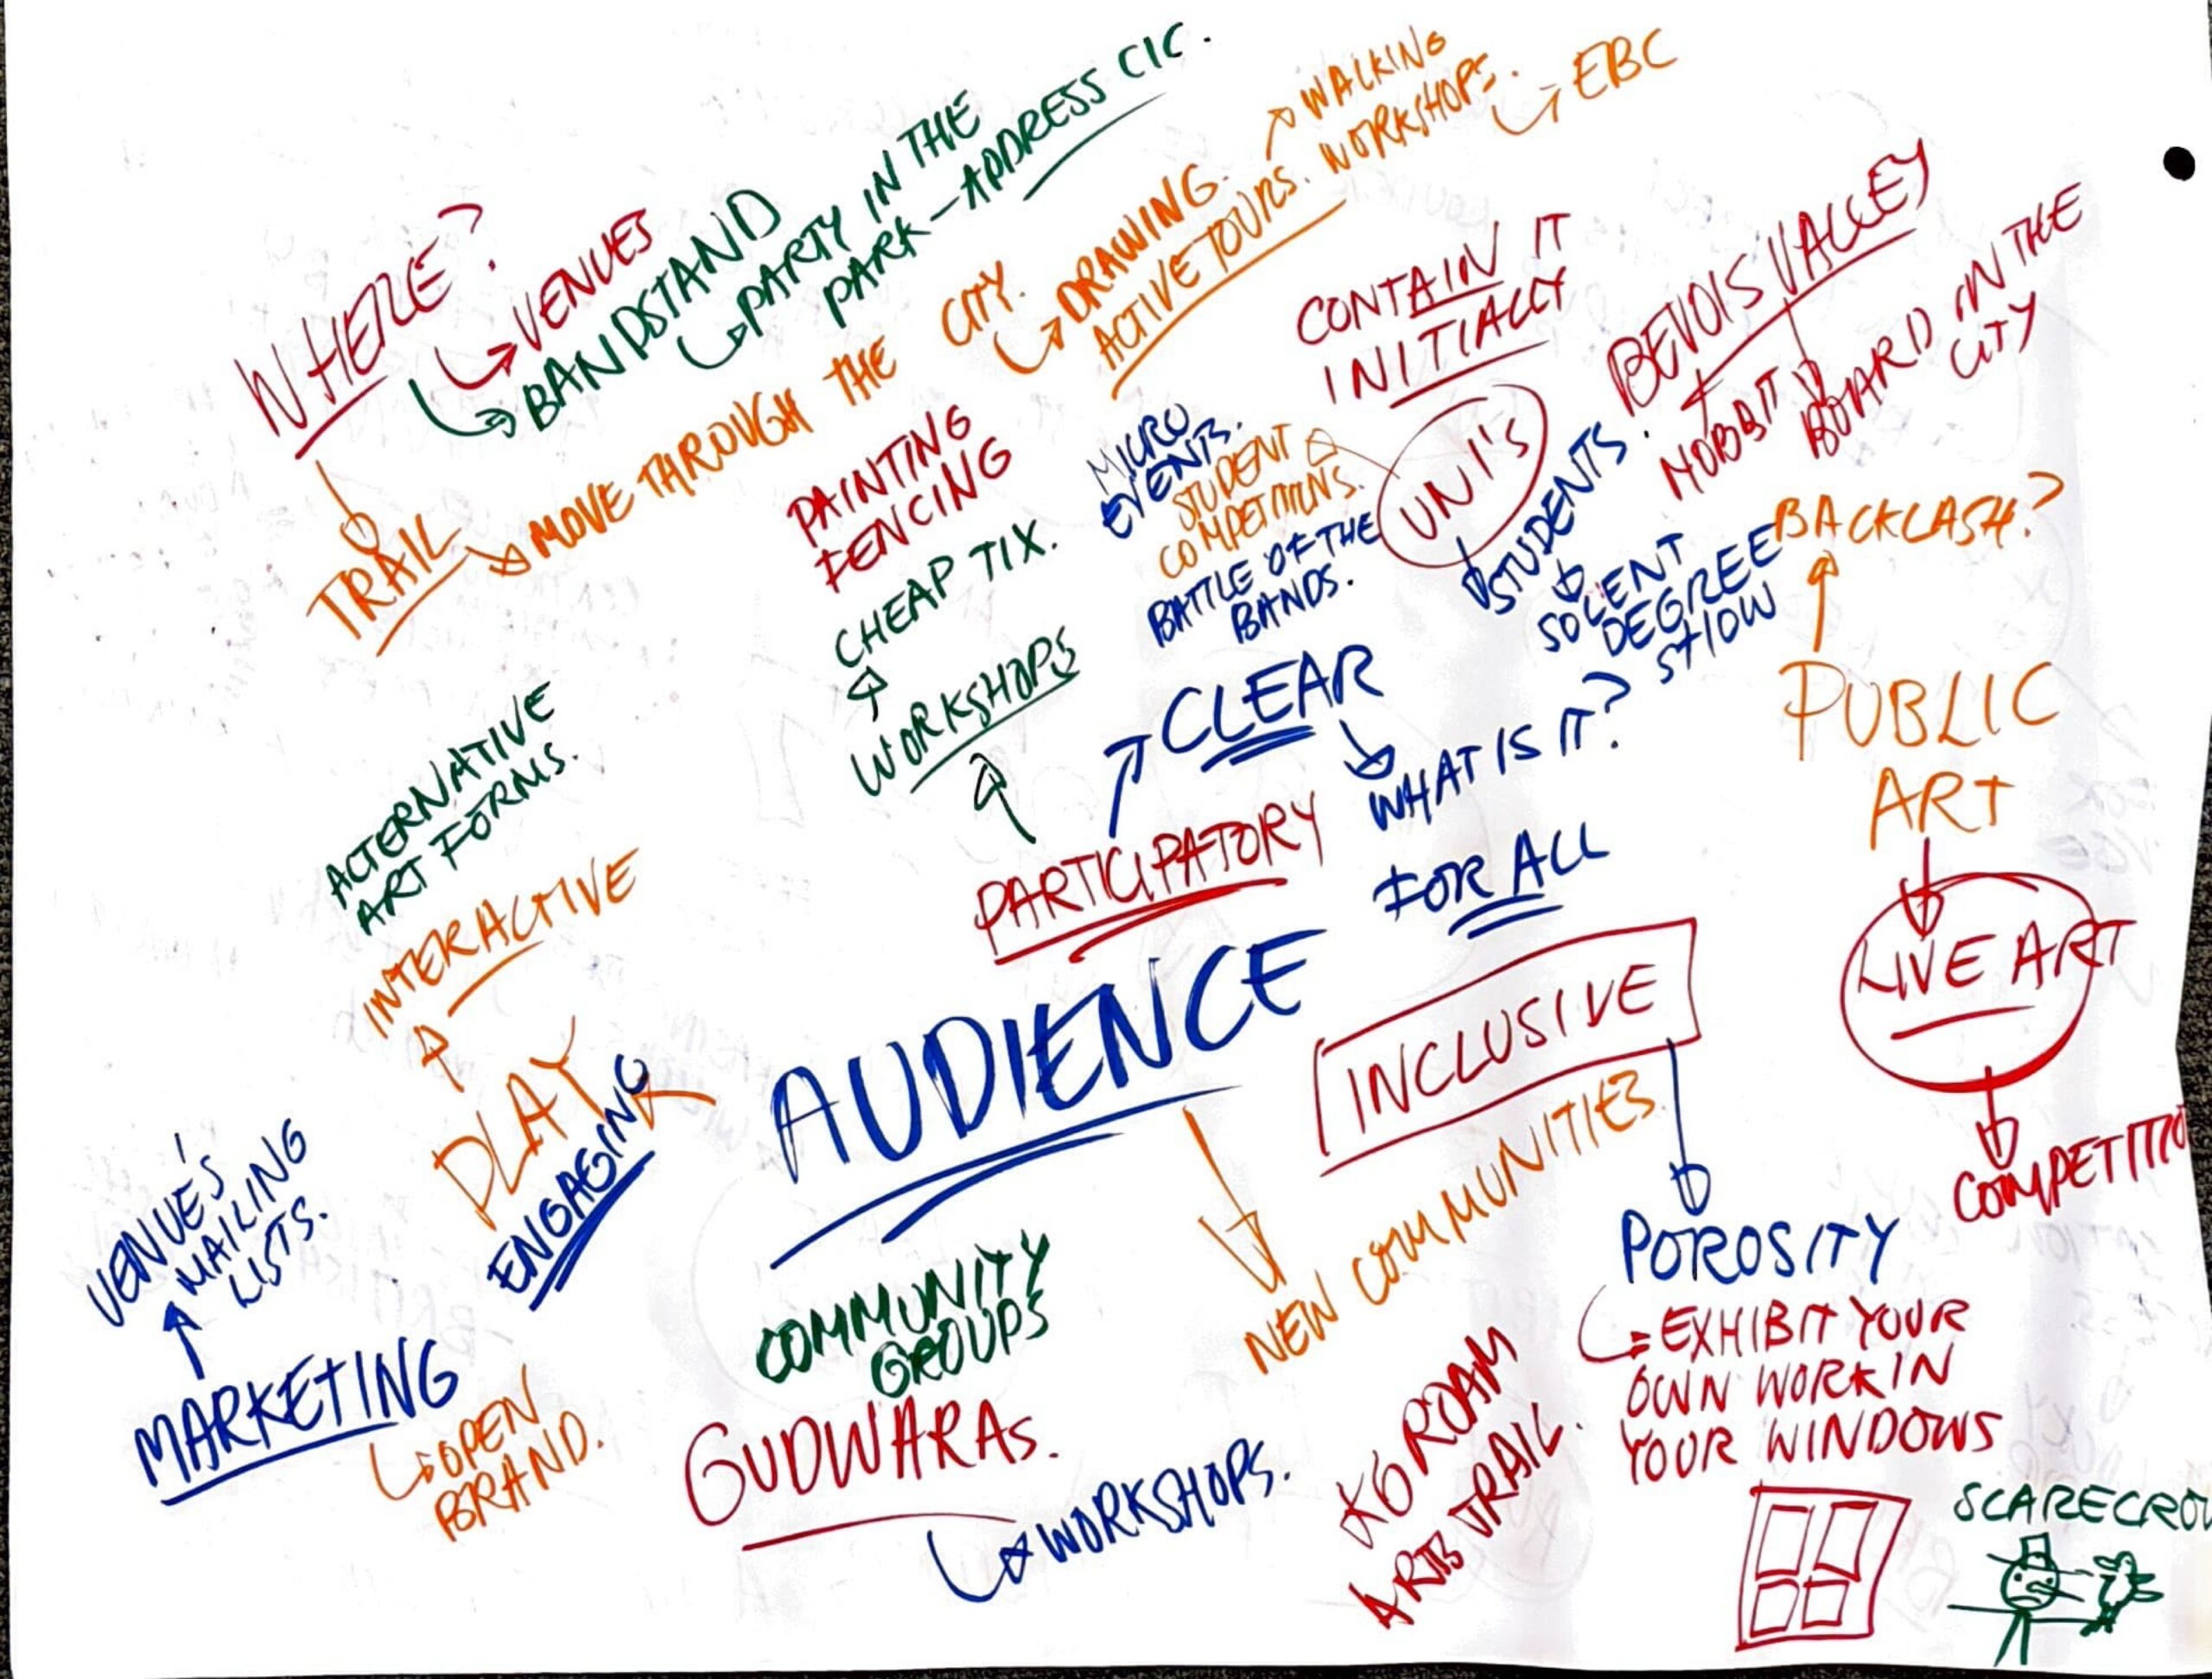 WHERE?
VENUES
BANDSTAND
PARTY IN THE
PARK – ADDRESS CIC.
TRAIL
MOVE THROUGH THE CITY.
DRAWING.
ACTIVE TOURS.
WALKING
WORKSHOPS.
EBC
CONTAIN IT
INITIALLY
BEVOIS VALLEY
HOBBIT
BOARD IN THE
CITY
PAINTING
FENCING
CHEAP TIX.
WORKSHOPS
MICRO
EVENTS.
STUDENT
COMPETITIONS.
BATTLE OF THE
BANDS.
UNI'S
STUDENTS.
SOLENT
DEGREE
SHOW
BACKLASH?
PUBLIC
ART
LIVE ART
COMPETITIO
CLEAR
WHAT IS IT?
PARTICIPATORY
FOR ALL
ALTERNATIVE
ART FORMS.
INTERACTIVE
PLAY
ENGAGING
AUDIENCE
INCLUSIVE
NEW COMMUNITIES.
POROSITY
EXHIBIT YOUR
OWN WORK IN
YOUR WINDOWS
SCARECROW
VENUE'S
MAILING
LISTS.
MARKETING
OPEN
BRAND.
COMMUNITY
GROUPS
GUDWARAS.
WORKSHOPS.
ROAM
ARTS TRAIL.